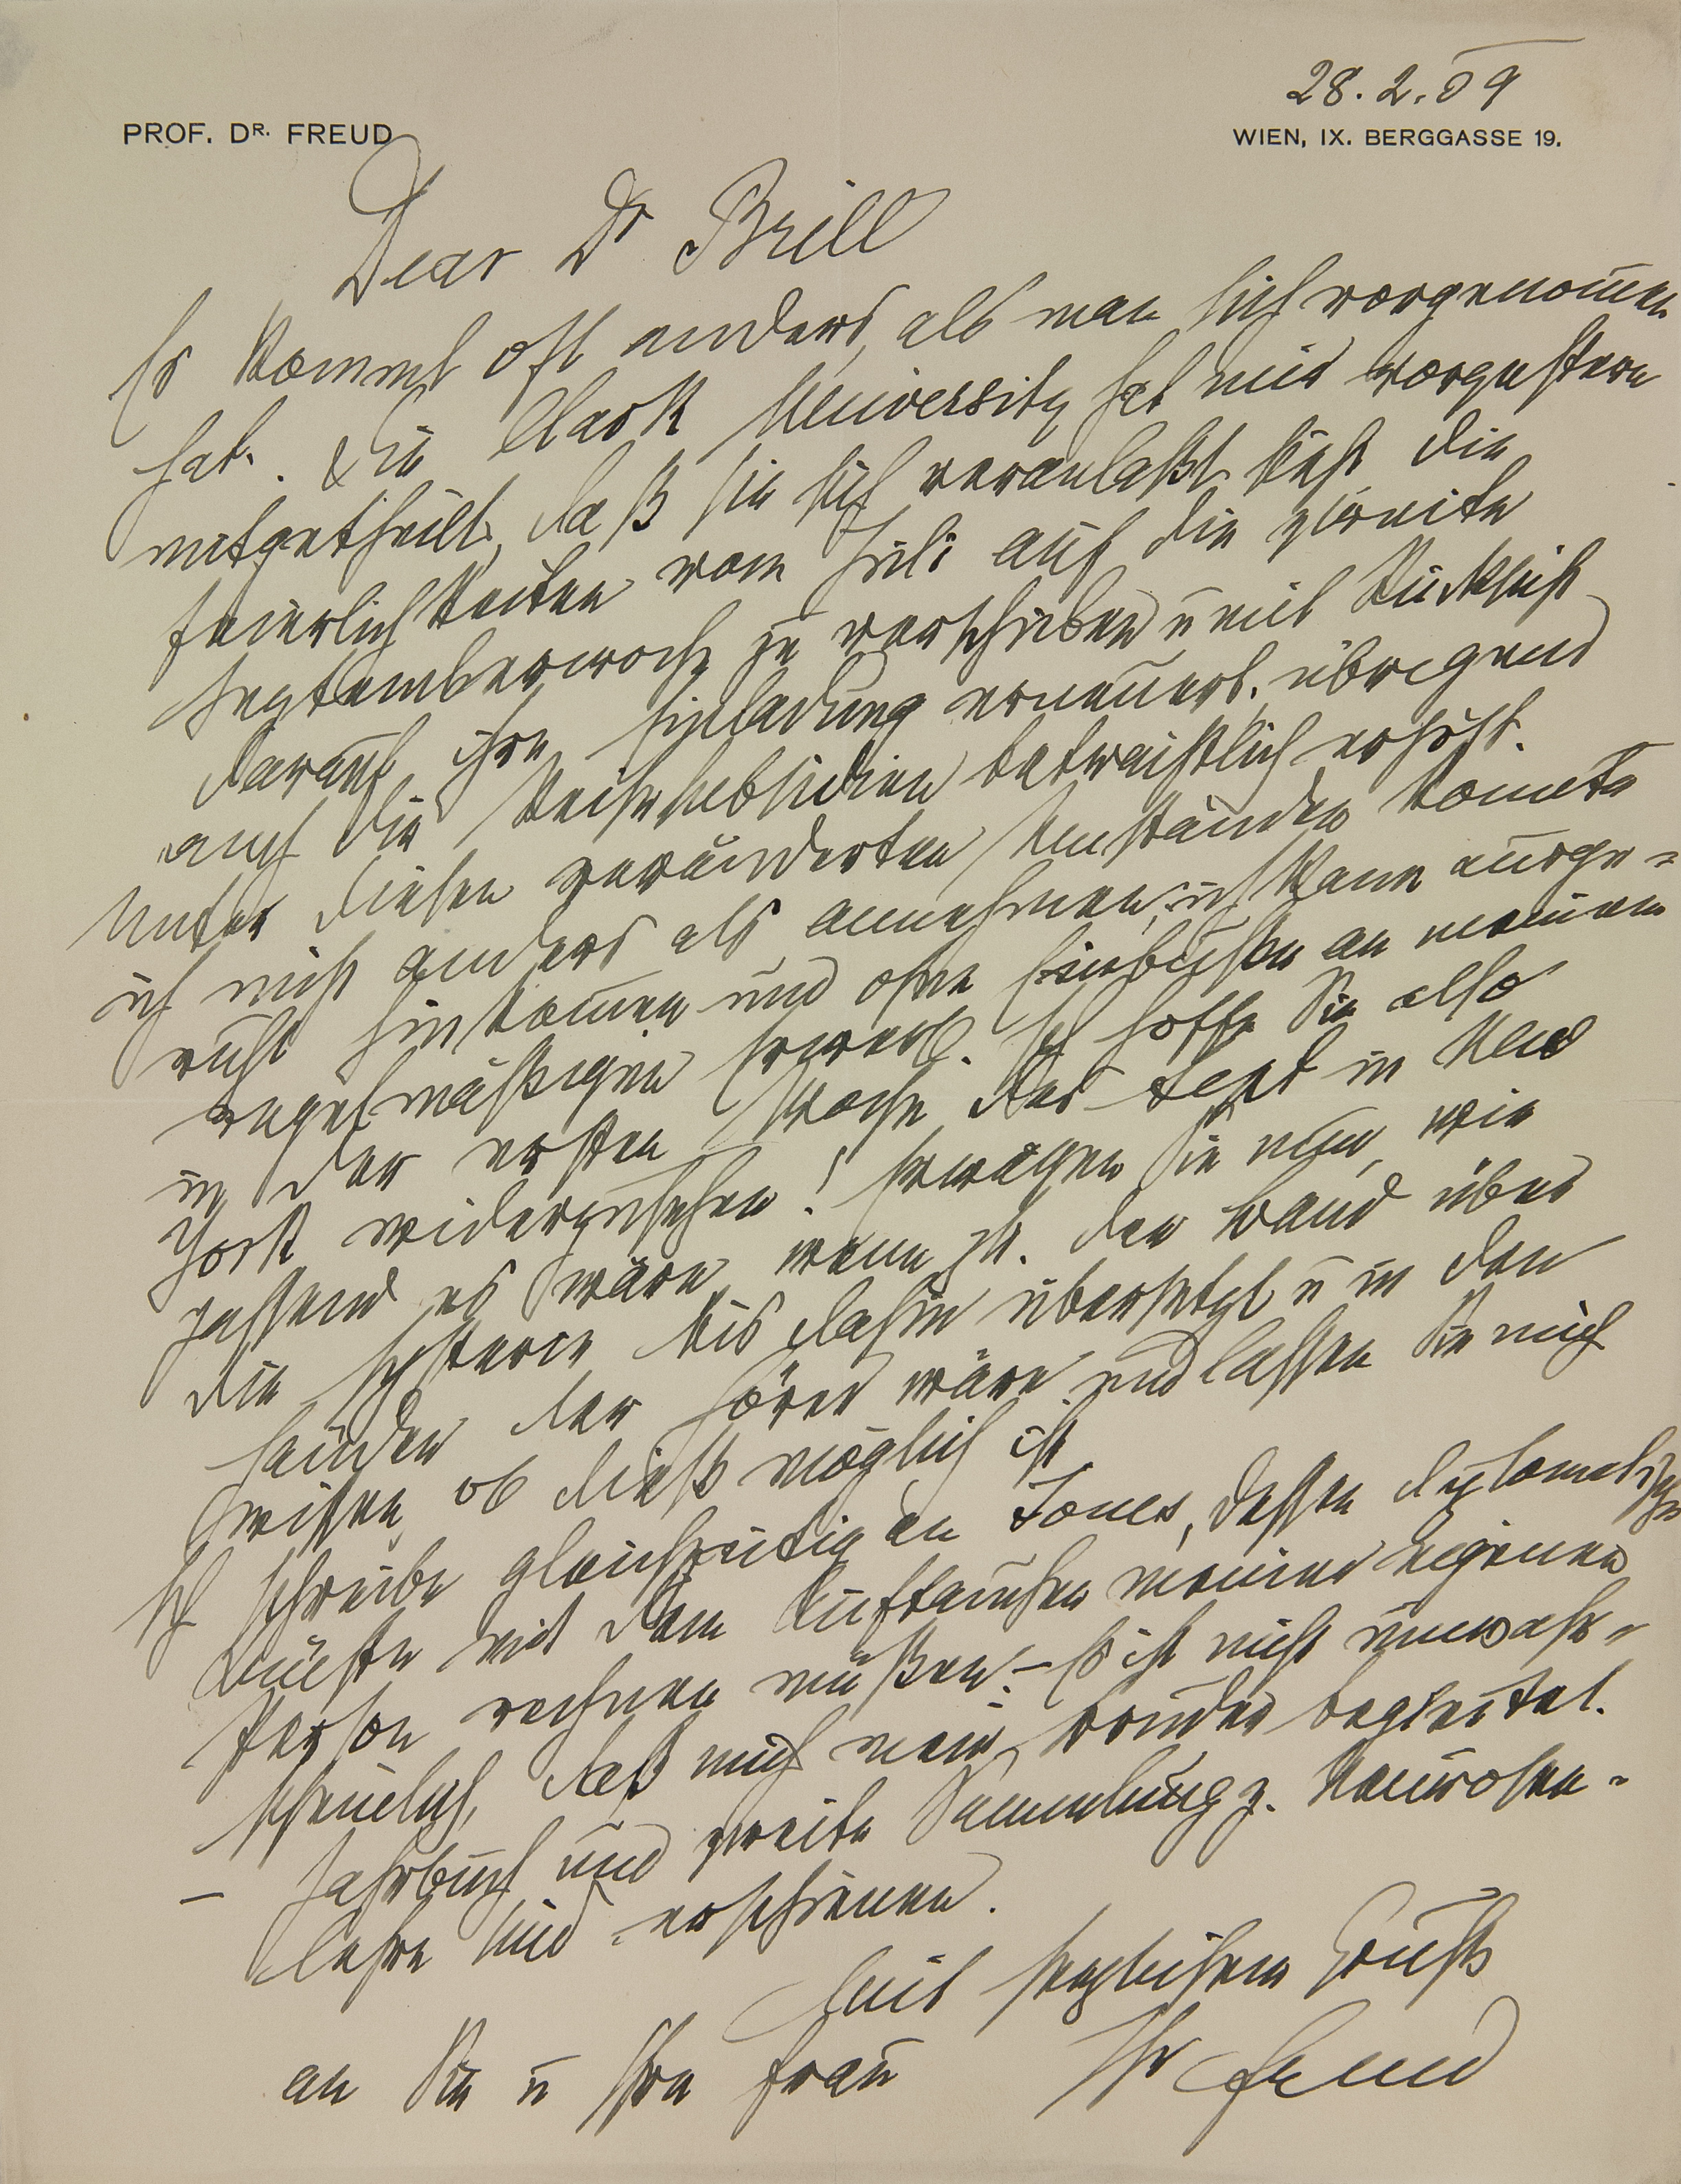 28.2.09
PROF. DR. FREUD
WIEN, IX. BERGGASSE 19.
Dear Dr Brill
Es kommt oft anders, als man sich vorgenom̅en
hat. Die Clark University hat mir vorgestern
mitgetheilt, daß sie sich veranlaßt sieht die
Feierlichkeiten vom Juli auf die zweite
Septemberwoche zu verschieben u mit Rücksicht
darauf ihre Einladung erneuert, übrigens
auch die Reisesubsidien beträchtlich erhöht.
Unter diesen veränderten Umständen konnte
ich nicht anders als annehmen; ich kann ausge-
ruht hinkom̅en und ohne Einbuße an meinem
regelmäßigen Erwerb. Ich hoffe Sie also
in der ersten Woche des Sept in New
York wiederzusehen! Erwägen Sie nun, wie
passend es wäre, wenn der Band über
die Hysterie bis dahin übersetzt u in den
Händen der Hörer wäre und lassen Sie mich
wissen, ob dieß möglich ist
Ich schreibe gleichzeitig an Jones, dessen diplomatische
Künste mit dem Auftauchen meiner eigenen
Person rechnen müßen. – Es ist nicht unwahr-
scheinlich, daß mich mein Bruder begleitet.
– Jahrbuch und zweite Sammlung z. Neurosen-
lehre sind erschienen.
Mit herzlichem Gruß
an Sie u Ihre Frau Ihr Freud